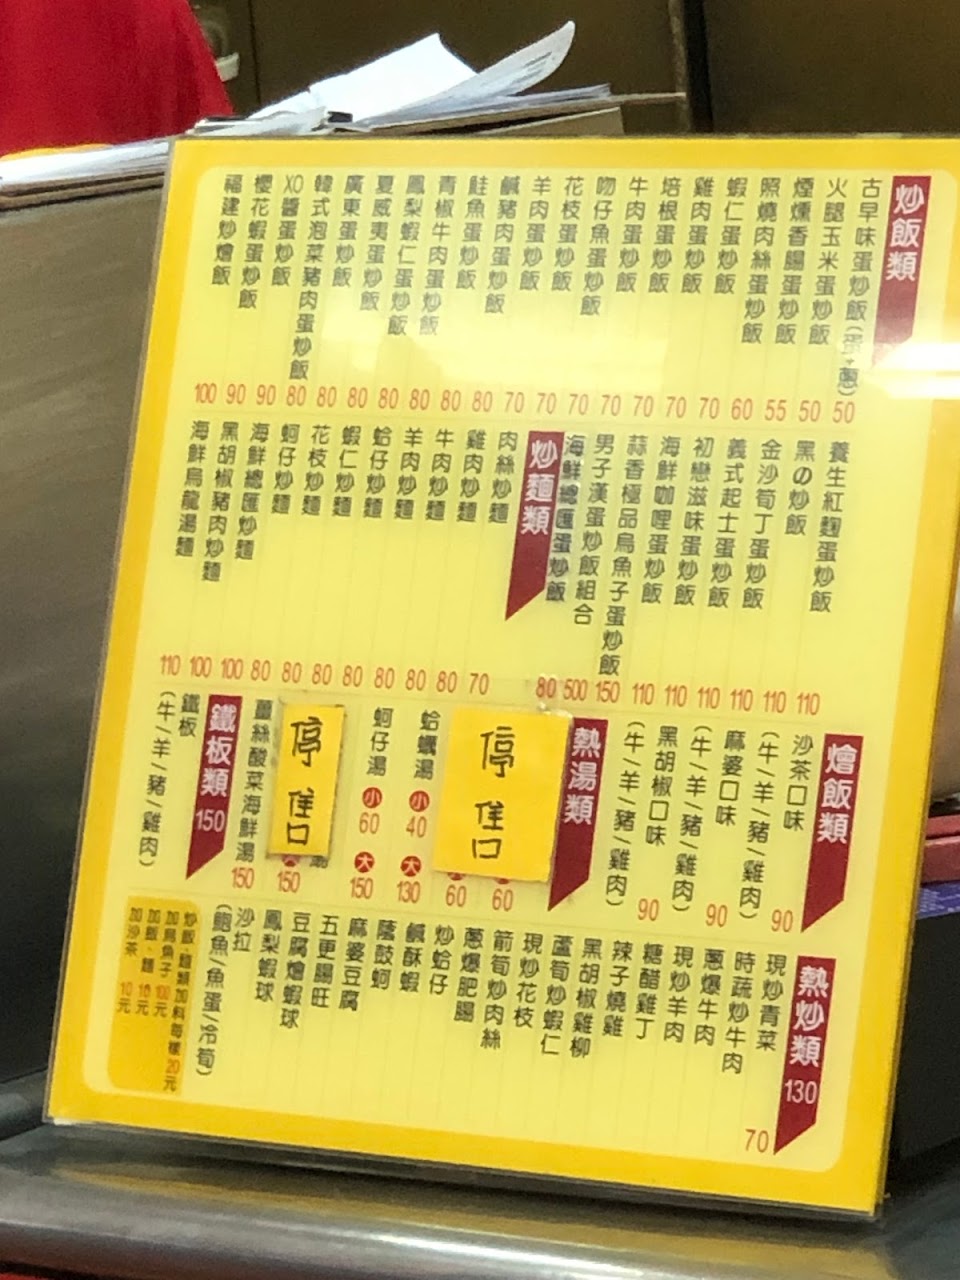 炒飯類
古早味蛋炒飯(蛋、蔥) 50
火腿玉米蛋炒飯 50
煙燻香腸蛋炒飯 55
照燒肉絲蛋炒飯 60
蝦仁蛋炒飯 70
雞肉蛋炒飯 70
培根蛋炒飯 70
牛肉蛋炒飯 70
吻仔魚蛋炒飯 70
花枝蛋炒飯 70
羊肉蛋炒飯 70
鹹豬肉蛋炒飯 80
鮭魚蛋炒飯 80
青椒牛肉蛋炒飯 80
鳳梨蝦仁蛋炒飯 80
夏威夷蛋炒飯 80
廣東蛋炒飯 80
韓式泡菜豬肉蛋炒飯 80
XO醬蛋炒飯 90
櫻花蝦蛋炒飯 90
福建炒燴飯 100
養生紅麴蛋炒飯 110
黑の炒飯 110
金沙筍丁蛋炒飯 110
義式起士蛋炒飯 110
初戀滋味蛋炒飯 110
海鮮咖哩蛋炒飯 110
蒜香極品烏魚子蛋炒飯 150
男子漢蛋炒飯組合 500
海鮮總匯蛋炒飯 80
炒麵類
肉絲炒麵 70
雞肉炒麵 80
牛肉炒麵 80
羊肉炒麵 80
蛤仔炒麵 80
蝦仁炒麵 80
花枝炒麵 80
蚵仔炒麵 80
海鮮總匯炒麵 100
黑胡椒豬肉炒麵 100
海鮮烏龍湯麵 110
燴飯類
沙茶口味
(牛/羊/豬/雞肉) 90
麻婆口味
(牛/羊/豬/雞肉) 90
黑胡椒口味
(牛/羊/豬/雞肉) 90
熱湯類
停售
60
60
蛤蠣湯 小40 大130
蚵仔湯 小60 大150
停售
湯 大150
薑絲酸菜海鮮湯 150
鐵板類 150
鐵板
(牛/羊/豬/雞肉)
熱炒類 130
現炒青菜 70
時蔬炒牛肉
蔥爆牛肉
現炒羊肉
糖醋雞丁
辣子燒雞
黑胡椒雞柳
蘆筍炒蝦仁
現炒花枝
箭筍炒肉絲
蔥爆肥腸
炒蛤仔
鹹酥蝦
蔭鼓蚵
麻婆豆腐
五更腸旺
豆腐燴蝦球
鳳梨蝦球
沙拉
(鮑魚/魚蛋/冷筍)
炒飯、麵類加料每樣20元
加烏魚子 100元
加飯、麵 10元
加沙茶 10元